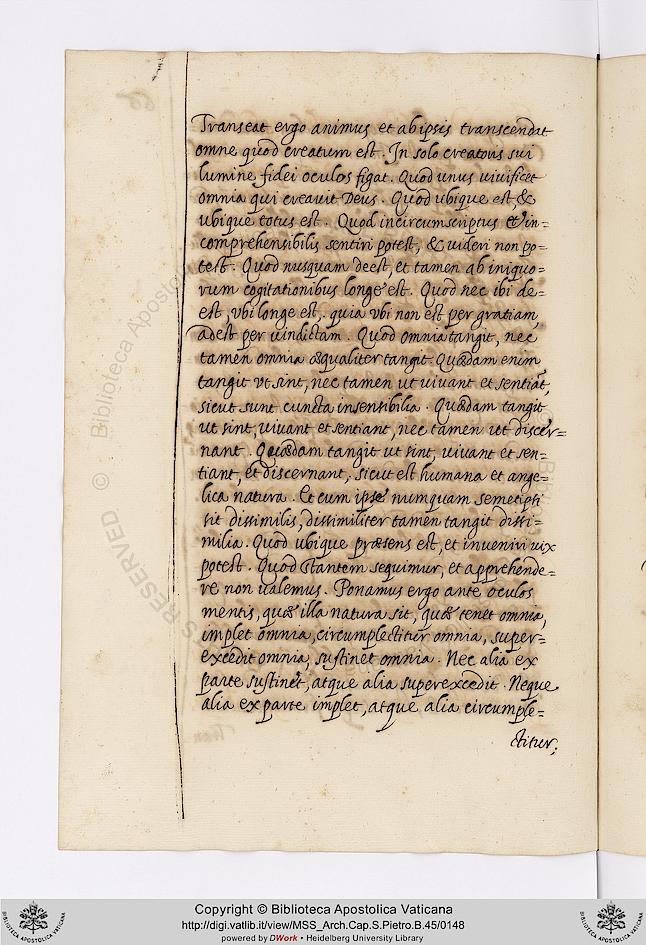 Transeat ergo animus et ab ipsis transcendat
omne quod creatum est. In solo creatoris sui
lumine fidei oculos figat. Quod unus vivificet
omnia qui creavit Deus. Quod ubique est, &
ubique totus est. Quod incircumscriptus et in=
comprehensibilis sentiri potest, & videri non po=
test. Quod nusquam deest, et tamen ab iniquo=
rum cogitationibus longe est. Quod nec ibi de=
est, vbi longe est, quia vbi non est per gratiam,
adest per vindictam. Quod omnia tangit, nec
tamen omnia æqualiter tangit. Quædam enim
tangit vt sint, nec tamen ut vivant et sentiāt,
sicut sunt cuncta insensibilia. Quædam tangit
ut sint, vivant et sentiant, nec tamen ut discer=
nant. Quædam tangit ut sint, vivant et sen=
tiant, et discernant, sicut est humana et ange=
lica natura. Et cum ipse numquam semetipsi
sit dissimilis, dissimiliter tamen tangit dissi=
milia. Quod ubique præsens est, et inveniri vix
potest. Quod stantem sequimur, et apprehende=
re non valemus. Ponamus ergo ante oculos
mentis, quæ illa natura sit, quæ tenet omnia,
implet omnia, circumplectitur omnia, super=
excedit omnia, sustinet omnia. Nec alia ex
parte sustinet, atque alia superexcedit. Neque
alia ex parte implet, atque alia circumple=
ctitur;
© Biblioteca Aposto
RESERVED
Copyright © Biblioteca Apostolica Vaticana
http://digi.vatlib.it/view/MSS_Arch.Cap.S.Pietro.B.45/0148
powered by DWork • Heidelberg University Library